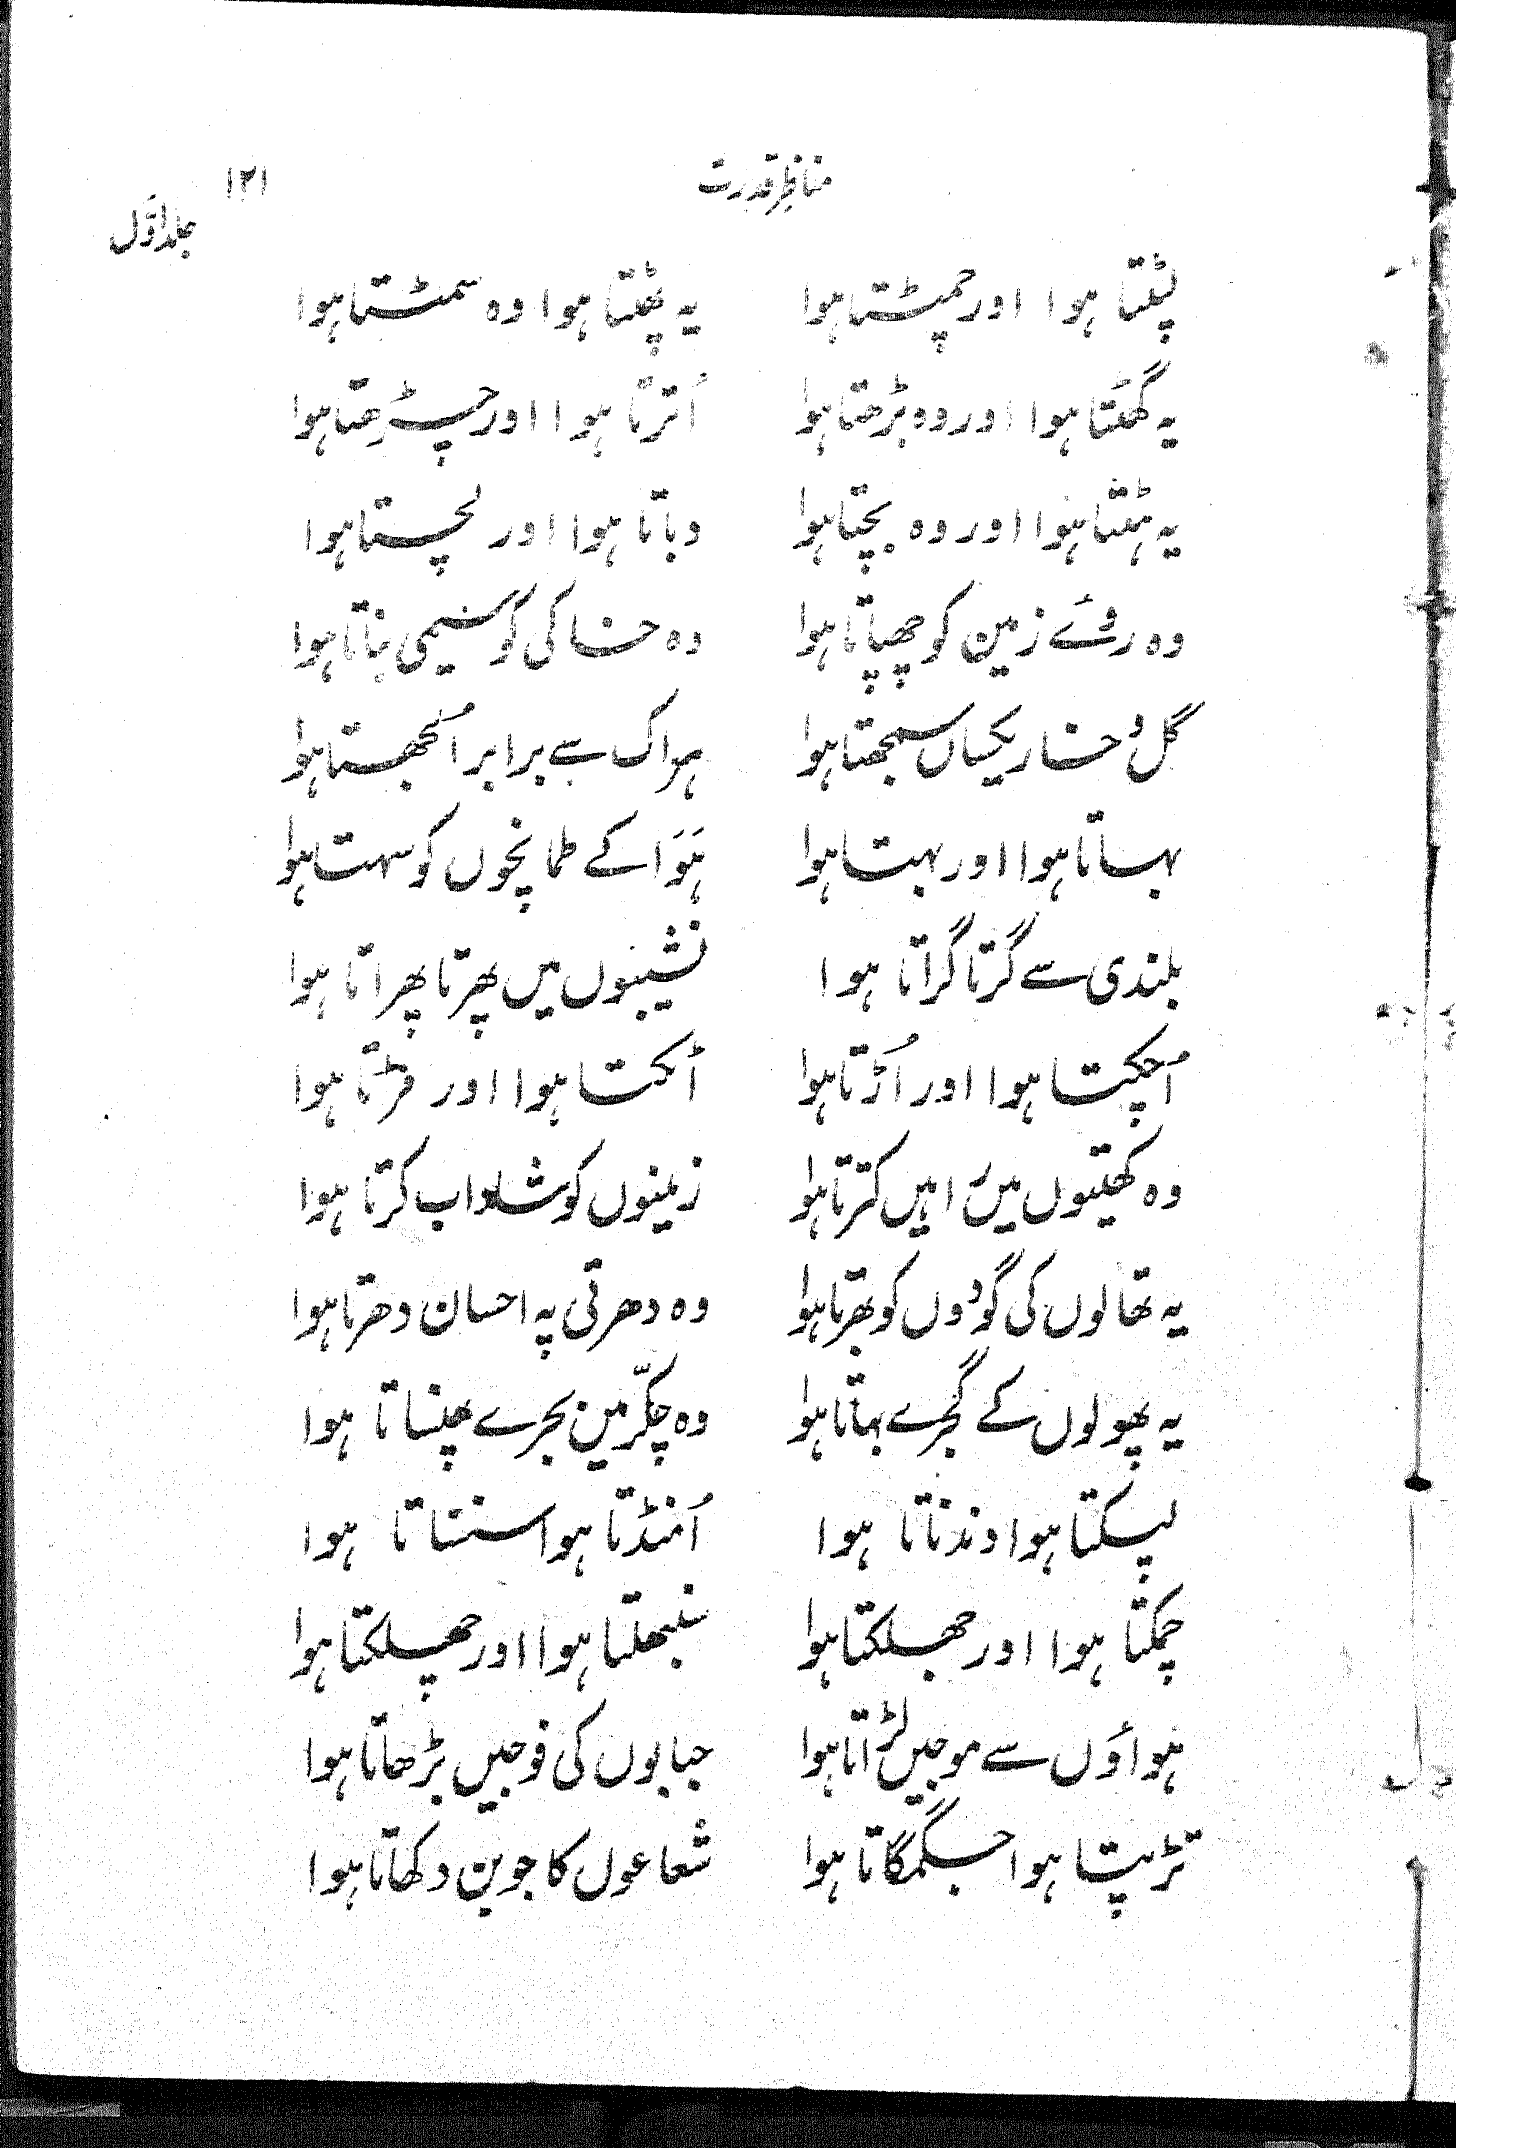 مناظرِ قدرت
۱۲۱
جلد اوّل
لپٹتا ہوا اور چمٹتا ہوا یہ پھٹتا ہوا وہ سمٹتا ہوا
یہ گھٹتا ہوا اور وہ بڑھتا ہوا اُترتا ہوا اور چڑھتا ہوا
یہ ہٹتا ہوا اور وہ بچتا ہوا دباتا ہوا اور لچتا ہوا
وہ روئے زمین کو چھپاتا ہوا وہ خاکی کو سیمی بناتا ہوا
گل و خار یکساں سمجھتا ہوا ہراک سے برابر اُلجھتا ہوا
بہاتا ہوا اور بہتا ہوا ہَوَا کے طمانچوں کو سہتا ہوا
بلندی سے گرتا گراتا ہوا نشیبوں میں پھرتا پھراتا ہوا
اُچکتا ہوا اور اُڑتا ہوا اٹکتا ہوا اور مڑتا ہوا
وہ کھیتوں میں راہیں کترتا ہوا زمینوں کو شاداب کرتا ہوا
یہ تھالوں کی گودوں کو بھرتا ہوا وہ دھرتی پہ احسان دھرتا ہوا
یہ پھولوں کے گجرے بہاتا ہوا وہ چکّر میں بجرے پھنساتا ہوا
لپکتا ہوا دندناتا ہوا اُمنڈتا ہوا سنسناتا ہوا
چمکتا ہوا اور جھلکتا ہوا سنبھلتا ہوا اور چھلکتا ہوا
ہواؤں سے موجیں لڑاتا ہوا حبابوں کی فوجیں بڑھاتا ہوا
تڑپتا ہوا جگمگاتا ہوا شعاعوں کا جوبن دکھاتا ہوا